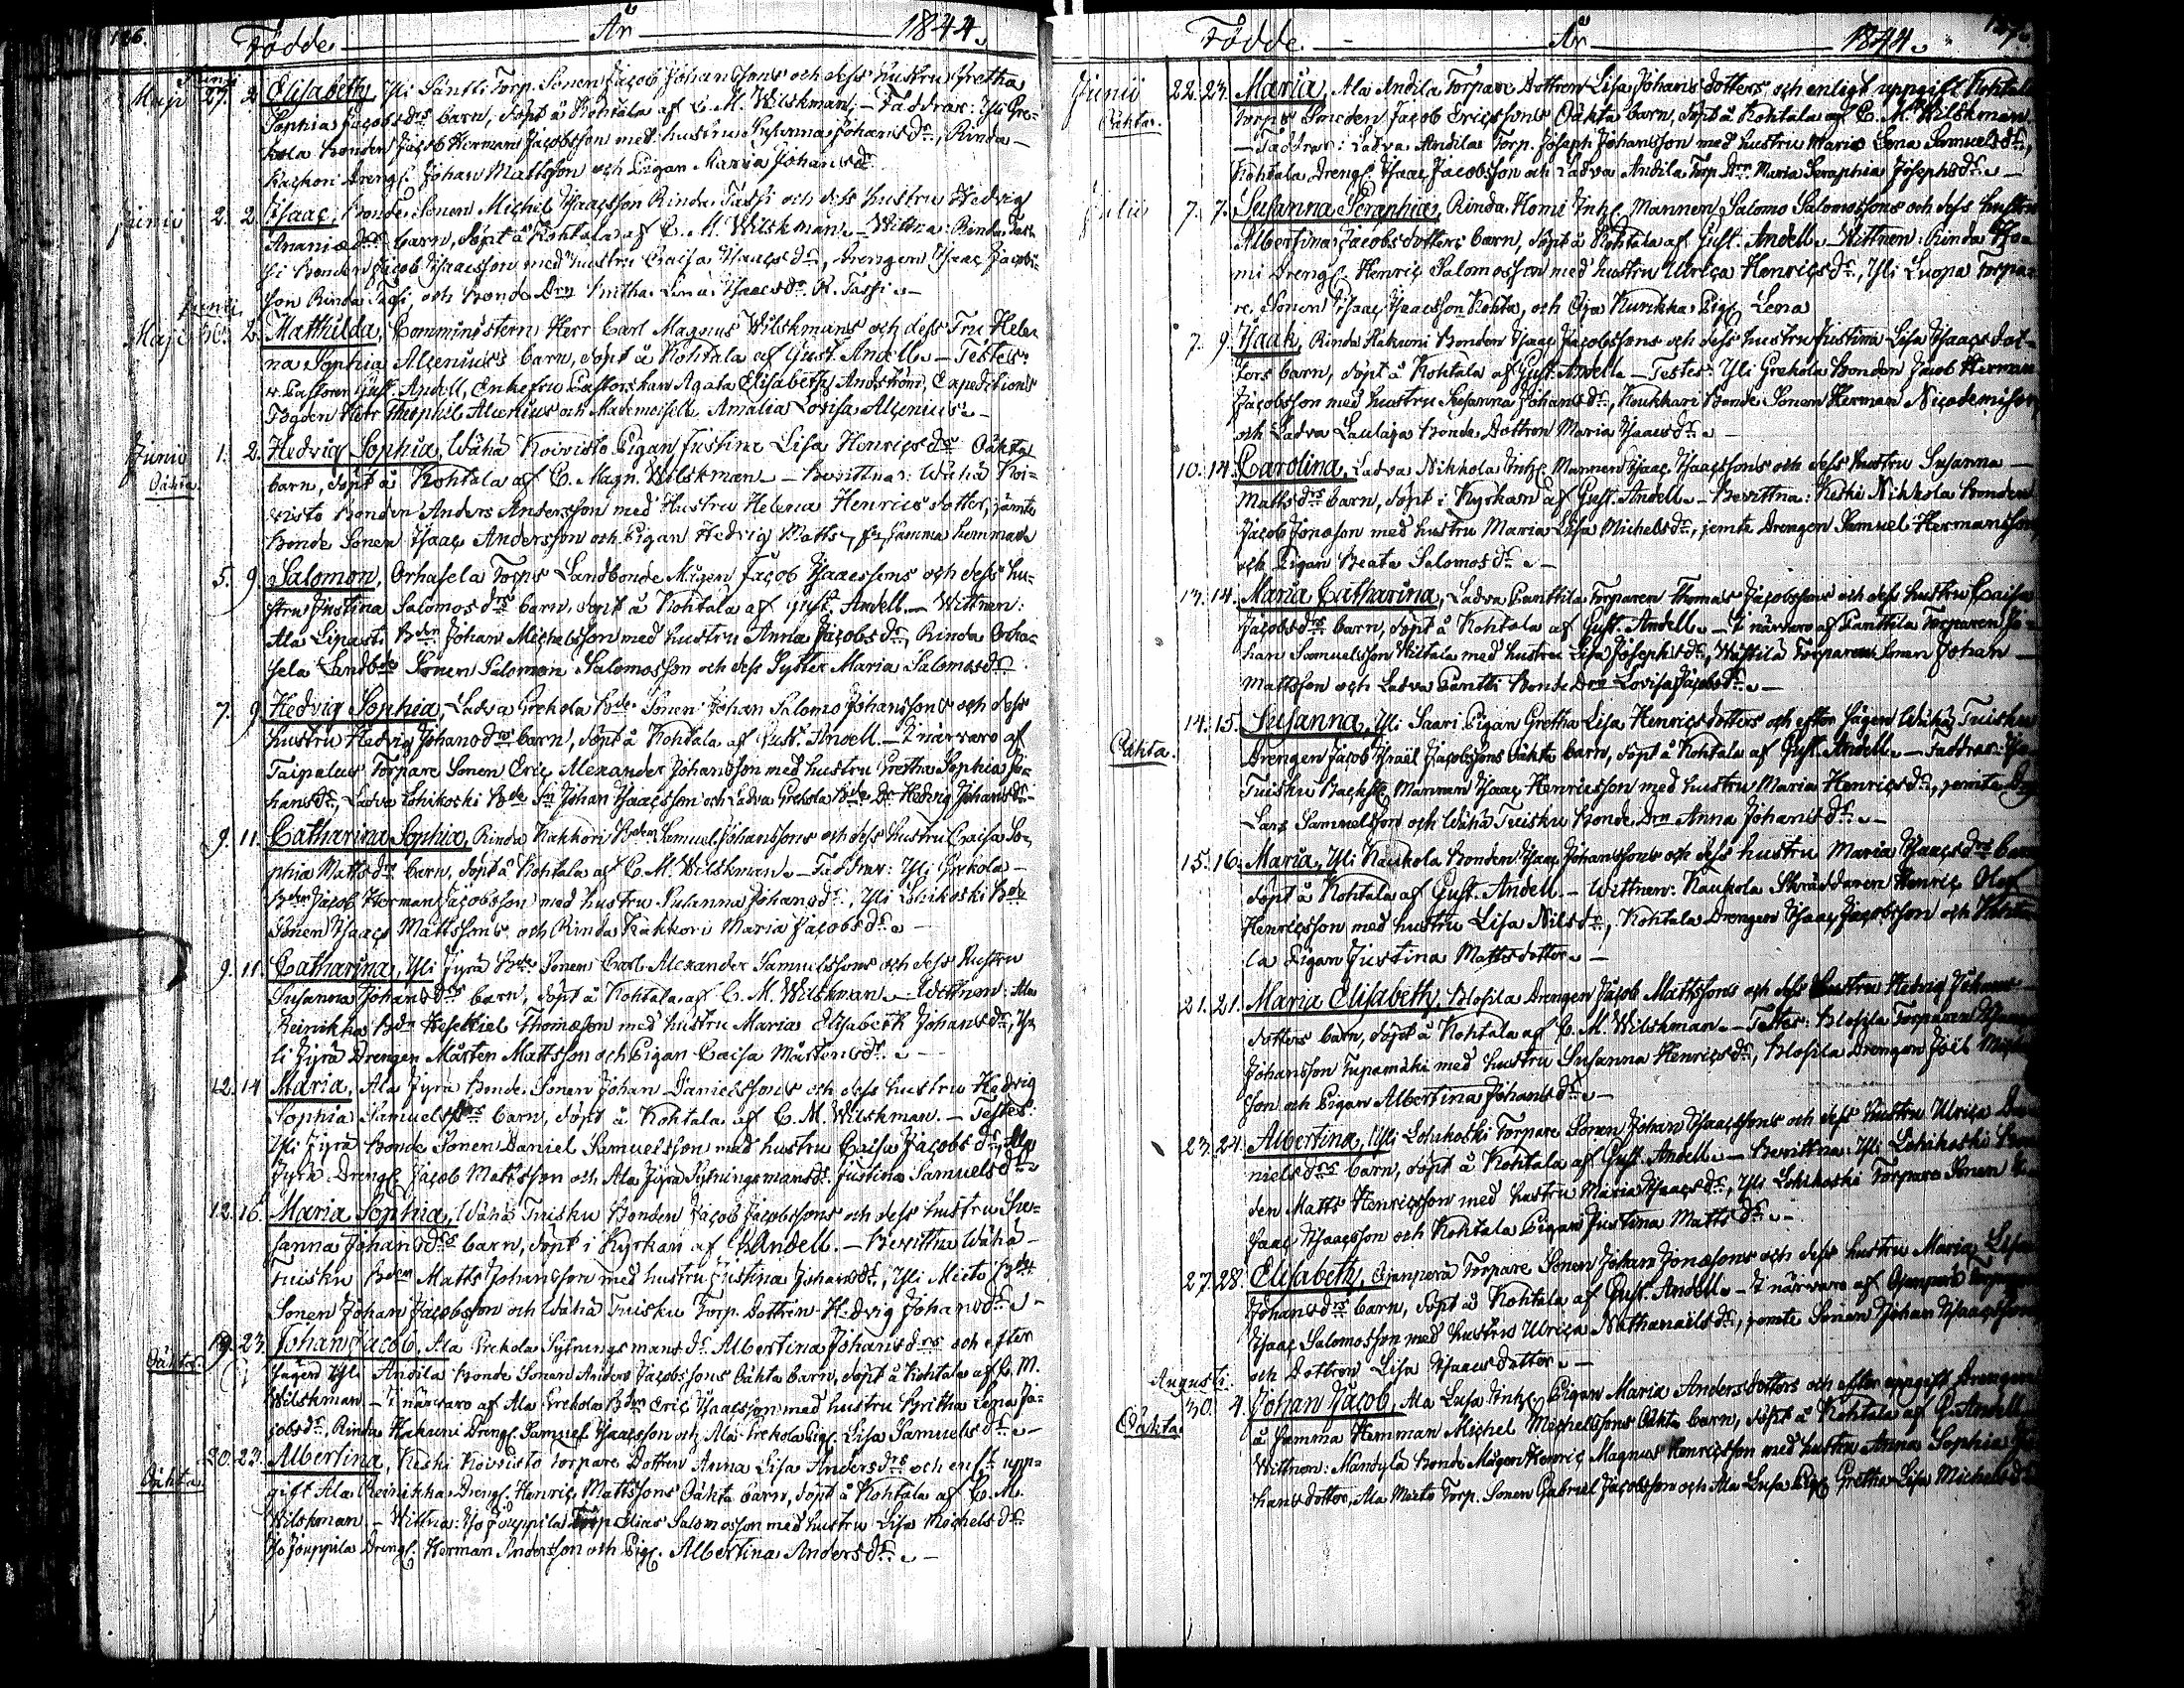 126.
Födde År 1844.
Maji 27. Junij 2. Elisabeth, Yli Säntti Torp. Sonen Jacob Johanssons och dess hustru Gretha
Sophia Jacobsdrs barn, döpt å Kohtala af C. M. Wilskman. – Faddrar: Yli Gre-
kola bonden Jacob Herman Jacobsson med hustru Susanna Johansdr, Rinda
Kackori Drengen Johan Mattsson och Pigan Maria Johansdr
Junii 2. 2. Isaac, Bonde Sonen Michel Isaacsson Rinda Tassi och dess hustru Hedvig
Ananiædrs barn, döpt å Kohtala af C. M. Wilskman. – Wittna: Rinda Tas-
si bonden Jacob Isaacsson med hustru Caisa Isaacsdr, Drengen Isaac Jacobs-
son Rinda Tassi, och bonde Drn Lena Isaacsdr R. Tassi. –
Maji 30. Junii 2. Mathilda, Comministern Herr Carl Magnus Wilskmans och dess Fru Hele-
na Sophia Alcenius's barn, döpt å Kohtala af Gust. Andell. – Testes:
v. Pastoren Gust. Andell, Enkefru Pastorskan Agata Elisabeth Andström, Expeditions
Fogden Herr Theophil Alcenius och Mademoiselle Amalia Lovisa Alcenius. –
Junii 1. 2. Hedvig Sophia, Wähä Koivisto Pigan Justina Lisa Henricsdrs Oäkta
Oäkta
barn, döpt å Kohtala af C. Magn. Wilskman. – Bevittna: Wähä Koi-
visto Bonden Anders Andersson med Hustru Helena Henricsdotter, jämte
Bonde Sonen Isaac Andersson och Pigan Hedvig Mattsdr, från samma hemman
5. 9. Salomon, Orhasela Torps Landbonde Mågen Jacob Isaacssons och dess hu-
stru Justina Salomosdrs barn, döpt å Kohtala af Gust. Andell. – Wittnen:
Ala Lipasti Bdn Johan Michelsson med hustru Anna Jacobsdr, Rinda Orha-
sela Landbde Sonen Salomon Salomosson och dess Syster Maria Salomosdr
7. 9. Hedvig Sophia, Ladva Grekola Bde Sonen Johan Salomo Johanssons och dess
hustru Hedvig Johansdrs barn, döpt å Kohtala af Gust. Andell. – I närvaro af
Taipalus Torpare Sonen Eric Alexander Johansson med hustru Gretha Sophia Jo-
hansdr, Ladva Lohikoski Bde Sn Johan Isaacsson och Ladva Grekola Bde Dr Hedvig Johansdr –
9. 11. Catharina Sophia, Rinda Kackori Bden Samuel Johanssons och dess hustru Caisa So-
phia Mattsdrs barn, döpt å Kohtala af C. M. Wilskman. – Faddrar: Yli Grekola
Bden Jacob Herman Jacobsson med hustru Susanna Johansdr, Yli Lohikoski Bde
Sonen Isaac Mattssons och Rinda Kackori Maria Jacobsdr. –
9. 11. Catharina, Yli Jyrä Bde Sonen Carl Alexander Samuelssons och dess Hustru
Susanna Johansdrs barn, döpt å Kohtala af C. M. Wilskman. – Wittnen: Ala
Reinikka Bdn Hesekiel Thomæson med hustru Maria Elisabeth Johansdr, Y-
li Jyrä Drengen Mårten Mattsson och Pigan Caisa Mårtensdr. –
12. 14 Maria, Ala Jyrä Bonde Sonen Johan Danielssons och dess hustru Hedvig
Sophia Samuelsdrs barn, döpt å Kohtala af C. M. Wilskman. – Testes:
Yli Jyrä Bonde Sonen Daniel Samuelsson med hustru Caisa Jacobsdr, Ala
Jyrä Drengen Jacob Mattsson och Ala Jyrä Sytningsmansdr Justina Samuelsdr.
12. 16. Maria Sophia, Wähä Tuisku Bonden Jacob Jacobssons och dess hustru Su-
sanna Johansdrs barn, döpt i Kyrkan af G Andell. – Bevittna Wähä
Tuisku Bden Matts Johansson med hustru Justina Johansdr, Yli Mieto Bde
Sonen Johan Jacobsson och Wähä Tuisku Torp. Dottren Hedvig Johansdr. –
19. 23. Johan Jacob, Ala Grekola Sytningsmans dr Albertina Johansdrs och efter
Oäkta.
sägen Yli Andila Bonde Sonen Anders Jacobssons Oäkta barn, döpt å Kohtala af C. M.
Wilskman – I närvaro af Ala Grekola Bdn Eric Isaacsson med hustru Britha Lena Ja-
cobsdr, Rinda Hakuni Dreng. Samuel Isaacsson och Ala Grekola Pig. Lisa Samuelsdr. –
20. 23. Albertina, Keski Koivisto Torpare Dottren Anna Lisa Andersdrs och enl. upp-
Oäkta.
gift Ala Reinikka Dreng. Henric Mattssons Oäkta barn, döpt å Kohtala af C. M.
Wilskman. – Wittna: Iso Jouppila Torp. Elias Salomosson med hustru Lisa Michelsdr
Iso Jouppila Dreng. Herman Andersson och Pig. Albertina Andersdr. –
127.
Födde År 1844.
Junii 22. 23. Maria, Ala Andila Torpare Dottren Lisa Johansdotters och enligt uppgift Kohtala
Oäkta.
torps Smeden Jacob Ericssons Oäkta barn, döpt å Kohtala af C. M. Wilskman
– Faddrar: Ladva Andila Torp. Joseph Johansson med hustru Maria Lena Samuelsdr,
Kohtala Dreng. Isaac Jacobsson och Ladva Andila Torp Drn Maria Seraphia Josephsdr. –
Julii 7. 7. Susanna Seraphia, Rinda Homi Inh. Mannen Salomo Salomossons och dess hustru
Albertina Jacobsdotters barn, döpt å Kohtala af Gust. Andell. – Wittnen: Rinda Ho-
mi Dreng. Henric Salomosson med hustru Ulrica Henricsdr, Yli Luopa Torpa-
re Sonen Isaac Isaacsson Kohta, och Oja Kurikka Pig. Lena
7. 9. Isaak, Rinda Hakuni Bonden Isaac Jacobssons och dess hustru Justina Lisa Isaacsdot-
ters barn, döpt å Kohtala af Gust. Andell. – Testes: Yli Grekola Bonden Jacob Herman
Jacobsson med hustru Susanna Johansdr, Koukkari Bonde Sonen Herman Nicodemisson
och Ladva Laulaja Bonde Dottren Maria Isaacsdr. –
10. 14. Carolina, Ladva Nikkola Inh. Mannen Isaac Isaacssons och dess hustru Susanna
Mattsdrs barn, döpt i Kyrkan af Gust. Andell. – Bevittna: Keski Nikkola Bonden
Jacob Jonæson med hustru Maria Lisa Michelsdr, jemte Drengen Samuel Hermansson,
och Pigan Beata Salomosdr. –
13. 14. Maria Catharina, Ladva Panttila Torparen Thomas Jacobssons och dess hustru Caisa
Jacobsdrs barn, döpt å Kohtala af Gust. Andell. – I närvaro af Panttila Torparen Jo-
han Samuelsson Wiitala med hustru Lisa Josephsdr, Wästilä Torparen Sonen Johan
Mattsson och Ladva Säntti Bonde Drn Lovisa Jacobsdr. –
14. 15. Susanna, Yli Saari Pigan Gretha Lisa Henricsdotters och efter sägen Wähä Tuisku
Oäkta.
Drengen Jacob Israel Jacobssons oäkta barn, döpt å Kohtala af Gust. Andell. – Faddrar:
Tuisku Mannen Isaac Henricsson med hustru Maria Henricsdr, jemte
Lars Samuelsson och Wähä Tuisku Bonde Drn Anna Johansdr. –
15. 16. Maria, Yli Kaukola Bonden Isaac Johanssons och dess hustru Maria Isaacsdrs barn
döpt å Kohtala af Gust. Andell. – Wittnen: Kaukola Skräddaren Henric Olof
Henricsson med hustru Lisa Nilsdr, Kohtala Drengen Isaac Jacobsson och Kohta-
la Pigan Justina Mattsdotter. –
21. 21. Maria Elisabeth, Blofila Drengen Jacob Mattssons och dess hustru Hedvig Johans-
dotters barn, döpt å Kohtala af C. M. Wilskman. – Testes: Blofila Torparen
Johansson Tupamäki med hustru Susanna Henricsdr, Blofila Drengen Joël
son och Pigan Albertina Johansdr. –
23. 24. Albertina, Yli Lohikoski Torpare Sonen Johan Isaacssons och dess hustru Ulrica Da-
nielsdrs barn, döpt å Kohtala af Gust. Andell. – Bevittna: Yli Lohikoski Bon-
den Matts Henricsson med hustru Maria Isaacsdr, Yli Lohikoski Torpare Sonen I-
saac Isaacsson och Kohtala Pigan Justina Mattsdr. –
27. 28. Elisabeth, Ojanperä Torpare Sonen Johan Jonæsons och dess hustru Maria Lisa
Johansdrs barn, döpt å Kohtala af Gust. Andell. – I närvaro af Ojanperä Torparen
Isaac Salomosson med hustru Ulrica Nathanaelsdr, jemte Sonen Johan Isaacsson
och Dottren Lisa Isaacsdotter. –
Augusti.
30. 4. Johan Jacob, Ala Lusa Inh. Pigan Maria Andersdotters och efter uppgift Drengen
Oäkta.
å samma Hemman Michel Michelssons Oäkta barn, döpt å Kohtala af G. Andell
Wittnen: Mandylä Bonde Mågen Henric Magnus Henricsson med hustru Anna Sophia Jo-
hansdotter, Ala Mieto Torp. Sonen Gabriel Jacobsson och Ala Lusa Pig. Gretha Lisa Michelsdr